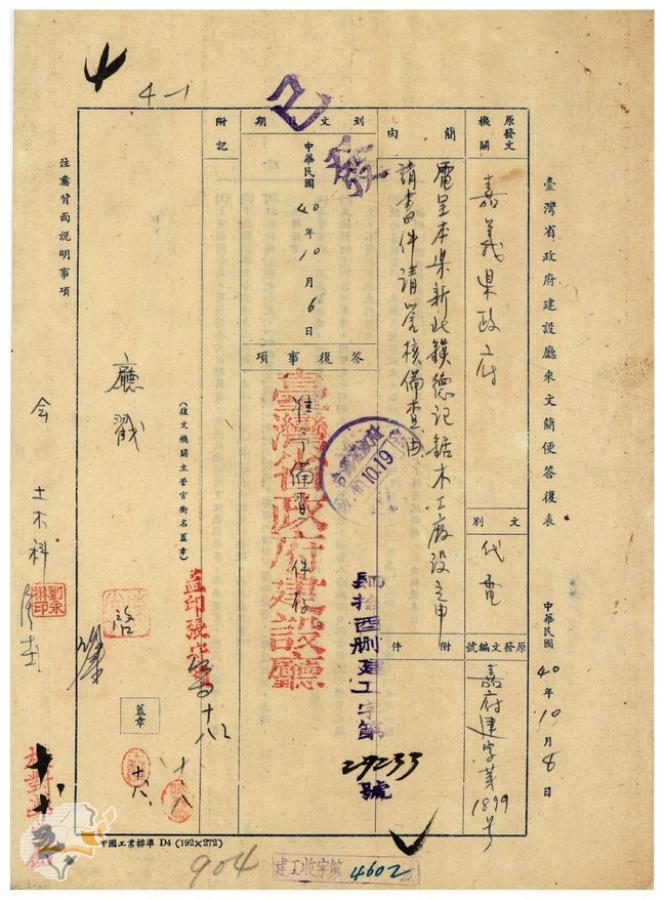 4-1
已發
臺灣省政府建設廳來文簡便答復表
中華民國40年10月8日
原發文機關
嘉義県政府
文別
代電
原發文編號
嘉府建字第1899号
簡由
電呈本県新北鎮德記鋸木工廠設立申
請書件請詧核備查由
附件
到文日期
中華民國40年10月6日
答復事項
准予備查件存
臺灣省政府建設廳
10.19
肆拾酉刪建工字第
29233
號
附記
(復文機關主管官銜名蓋章)
廳戳
蓋章
會土木科
注意背面說明事項
中國工業標準 D4 (192×272)
904
建工收字第4602號